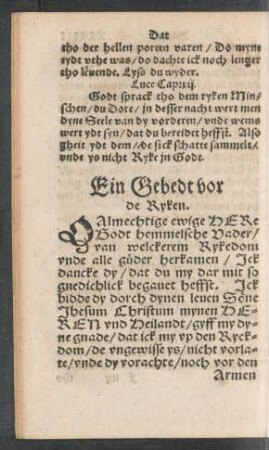 Dat
tho der hellen porten varen / Do myne
tydt vthe was / do dachte ick noch lenger
tho leuende. Lyso du wyder.
Luce Cap: xij.
Godt sprack tho dem ryken Min-
schen / du Dore / jn desser nacht wert men
dyne Seele van dy vorderen / vnde wems
wert ydt syn / dat du bereidet heffst. Also
gheit ydt dem / de sick schatte sammelt /
vnde ys nicht Ryke jn Godt.
Ein Gebedt vor
de Ryken.
O Almechtige ewige HERe
Godt hemmelsche Vader /
van welckerem Rykedom
vnde alle güder herkamen / Jck
dancke dy / dat du my dar mit so
gnedichlick begauet heffst. Jck
bidde dy dorch dynen leuen Söne
Jhesum Christum mynen HE-
REN vnd Heilandt / gyff my dy-
ne gnade / dat ick my vp den Ryck-
dom / de vngewisse ys / nicht vorla-
te / vnde dy vorachte / noch vor den
Armen